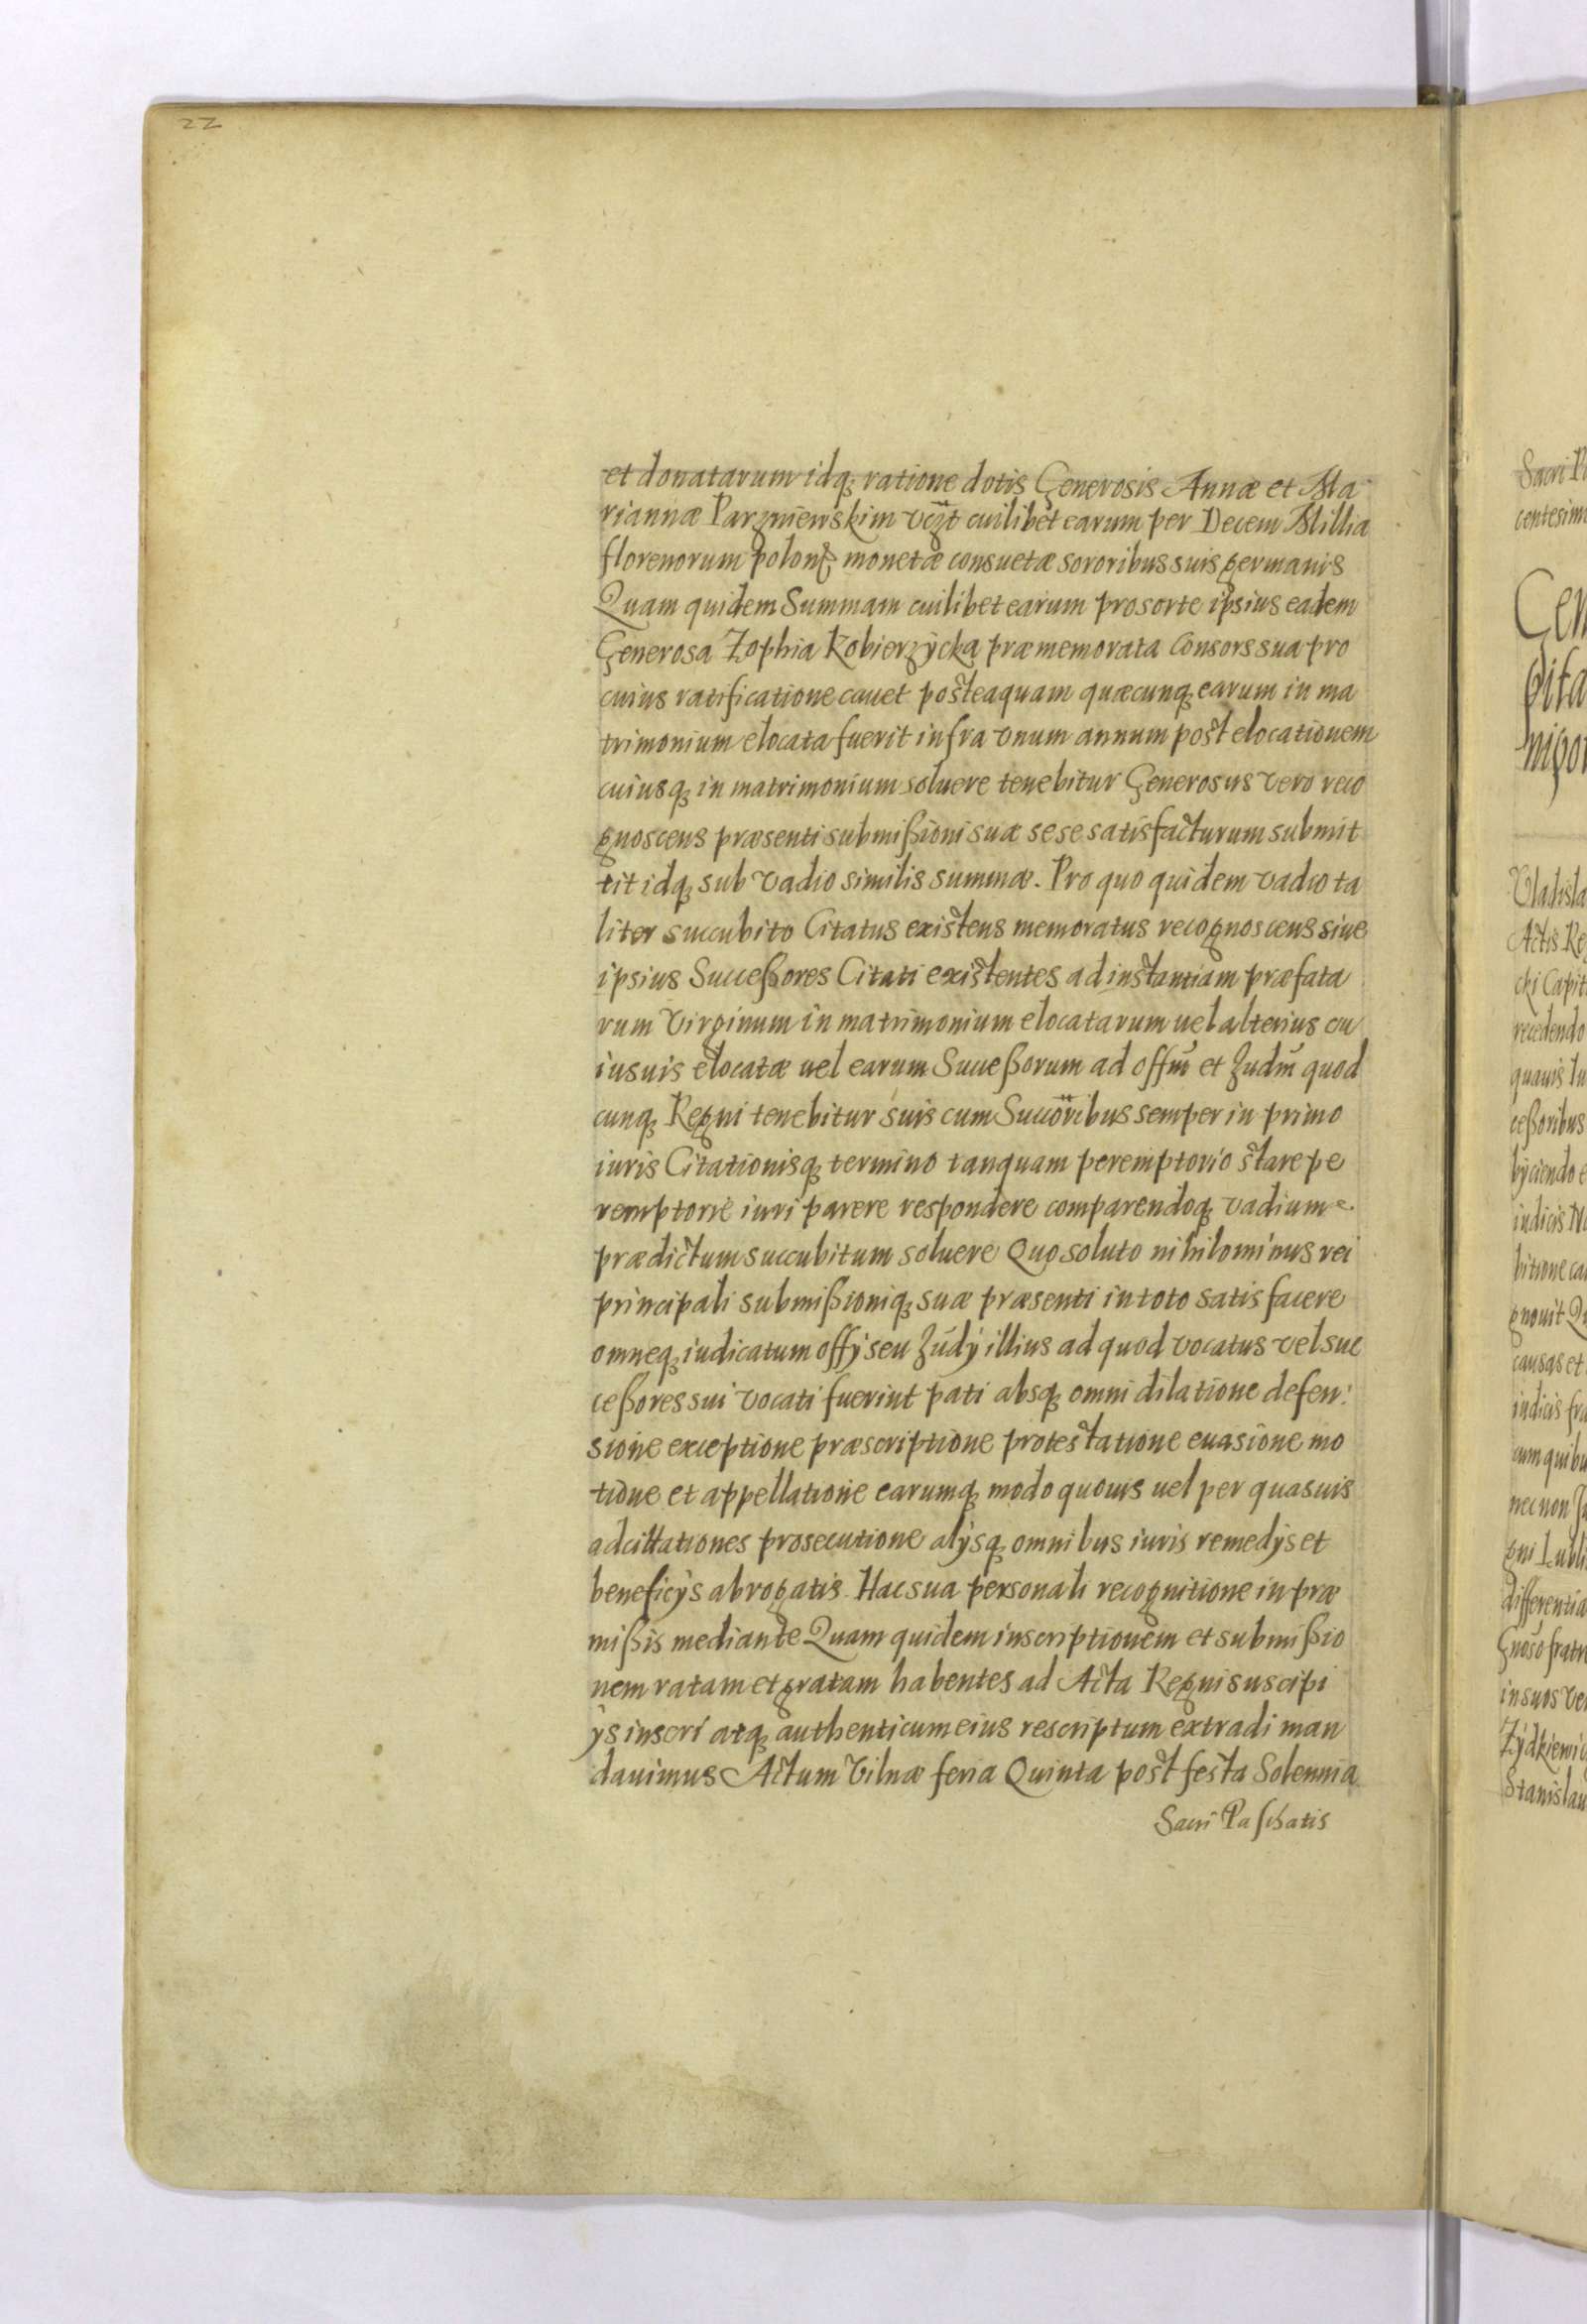 22
et donatarum idq ratione dotis Generosis Annæ et Ma
riannæ Parzniewskim vczt cuilibet earum per Decem Millia
florenorum polon monetæ consuetæ sororibus suis germanis
Quam quidem Summam cuilibet earum pro sorte ipsius eadem
Generosa Zophia Kobierzÿcka præmemorata Consors sua pro
cuius ratificatione cauet posteaquam quæcunq earum in ma
trimonium elocata fuerit infra vnum annum post elocationem
cuiusq in matrimonium soluere tenebitur Generosus vero reco
gnoscens præsenti submißioni suæ sese satisfacturum submit
tit idq sub vadio similis summæ. Pro quo quidem vadio ta
liter succubito Citatus existens memoratus recognoscens siue
ipsius Succeßores Citati existentes ad instantiam præfata
rum Virginum in matrimonium elocatarum uel alterius cu
iusuis elocatæ uel earum Succeßorum ad offm et Judm quod
cunq Regni tenebitur suis cum Succoribus semper in primo
iuris Citationisq termino tanquam peremptorio stare pe
remptorie iuri parere respondere comparendoq vadium
prædictum succubitum soluere Quo soluto nihilominus rei
principali submißioniq suæ præsenti in toto satisfacere
omneq iudicatum offÿ seu Judÿ illius ad quod vocatus vel suc
ceßores sui vocati fuerint pati absq omni dilatione defen:
sione exceptione præscriptione protestatione euasione mo
tione et appellatione earumq modo quouis uel per quasuis
adcitationes prosecutione alÿsq omnibus iuris remedÿs et
beneficÿs abrogatis. Hac sua personali recognitione in præ
mißis mediante Quam quidem inscriptionem et submißio
nem ratam et gratam habentes ad Acta Regni suscipi
ÿs inscri atq authenticum eius rescriptum extradi man
dauimus Actum Vilnæ feria Quinta post festa Solennia
Sacri Paschatis